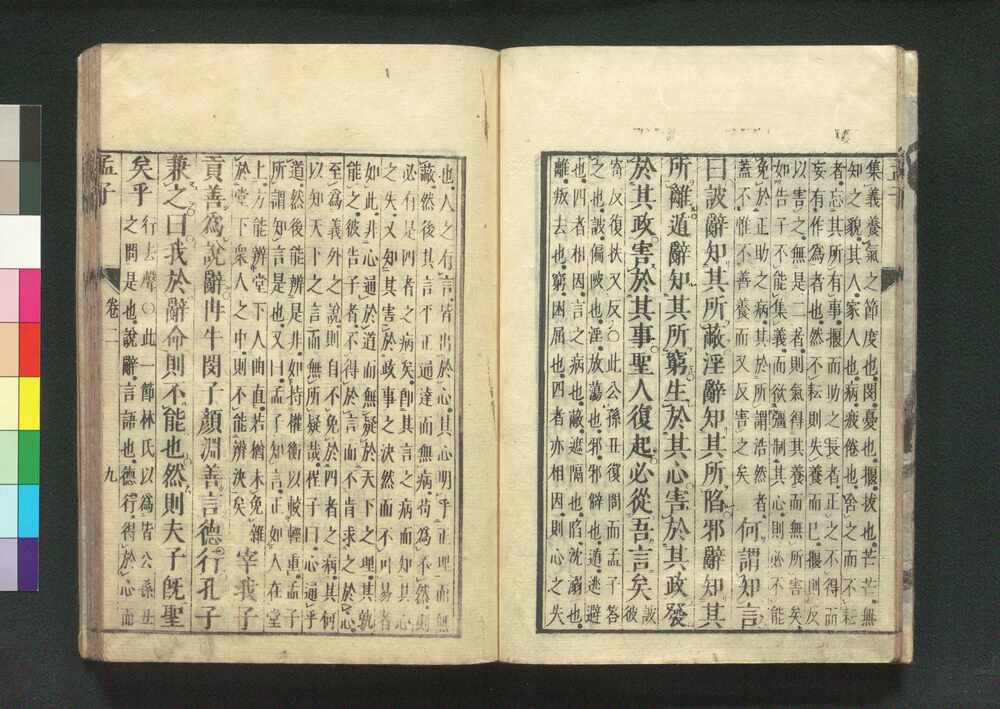 集義養氣之節度也閔憂也揠拔也芒芒無
知之貌其人家人也病疲倦也舍之而不耘
者忘其所有事揠而助之長者正之不得而
妄有作爲者也然不耘則失養而已揠則反
以害之無是二者則氣得其養而無所害矣
如告子不能集義而欲彊制其心則必不能
免於正助之病其於所謂浩然者
蓋不惟不善養而又反害之矣
何謂知言
曰詖辭知其所蔽淫辭知其所陷邪辭知其
所離遁辭知其所窮生於其心害於其政發
於其政害於其事聖人復起必從吾言矣
詖
彼
寄反復扶又反○此公孫丑復問而孟子答
之也詖偏陂也淫放蕩也邪邪僻也遁逃避
也四者相因言之病也蔽遮隔也陷沈溺也
離叛去也窮困屈也四者亦相因則心之失
也人之有言皆出於心其心明乎正理而無
蔽然後其言平正通達而無病苟爲不然則
必有是四者之病矣卽其言之病而知其心
之失又知其害於政事之決然而不可易者
如此非心通於道而無疑於天下之理其孰
能之彼告子者不得於言而不肯求之於心
至爲義外之說則自不免於四者之病其何
以知天下之言而無所疑哉程子曰心通乎
道然後能辨是非如持權衡以較輕重孟子
所謂知言是也又曰孟子知言正如人在堂
上方能辨堂下人曲直若猶未免雜
於堂下衆人之中則不能辨決矣
宰我子
貢善爲說辭冉牛閔子顏淵善言德行孔子
兼之曰我於辭命則不能也然則夫子旣聖
矣乎
行去聲○此一節林氏以爲皆公孫丑
之問是也說辭言語也德行得於心而
孟子
卷二
九